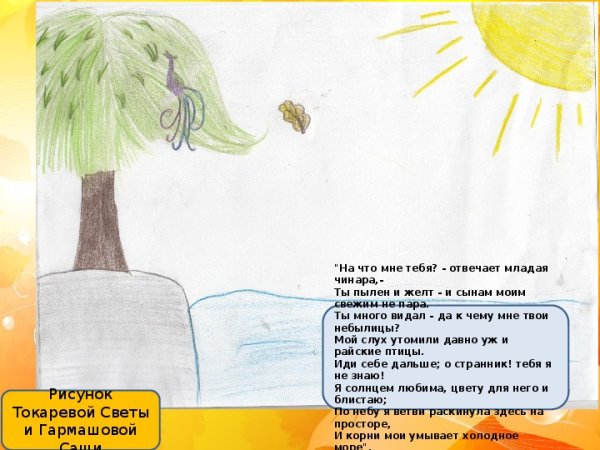 "На что мне тебя? - отвечает младая
чинара,-
Ты пылен и желт - и сынам моим
свежим не пара.
Ты много видал - да к чему мне твои
небылицы?
Мой слух утомили давно уж и
райские птицы.
Иди себе дальше; о странник! тебя я
не знаю!
Я солнцем любима, цвету для него и
блистаю;
По небу я ветви раскинула здесь на
просторе,
И корни мои умывает холодное
море".
Рисунок
Токаревой Светы
и Гармашовой
Саши